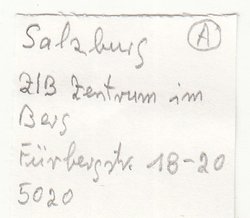 Salzburg (A)
ZIB Zentrum im
Berg
Fürbergstr. 18-20
5020